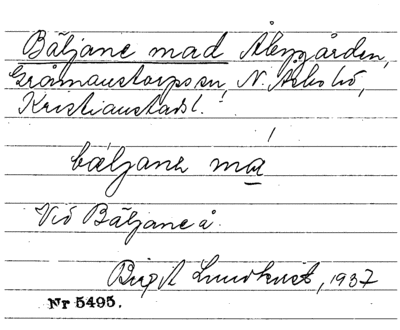 Bäljane mad Åkergården,
Gråmanstorps sn, N. Åsbo hd,
Kristianstads l.
bæljane mɑ
Vid Bäljane å.
Birgit Lundkvist, 1937
Nr 5495.